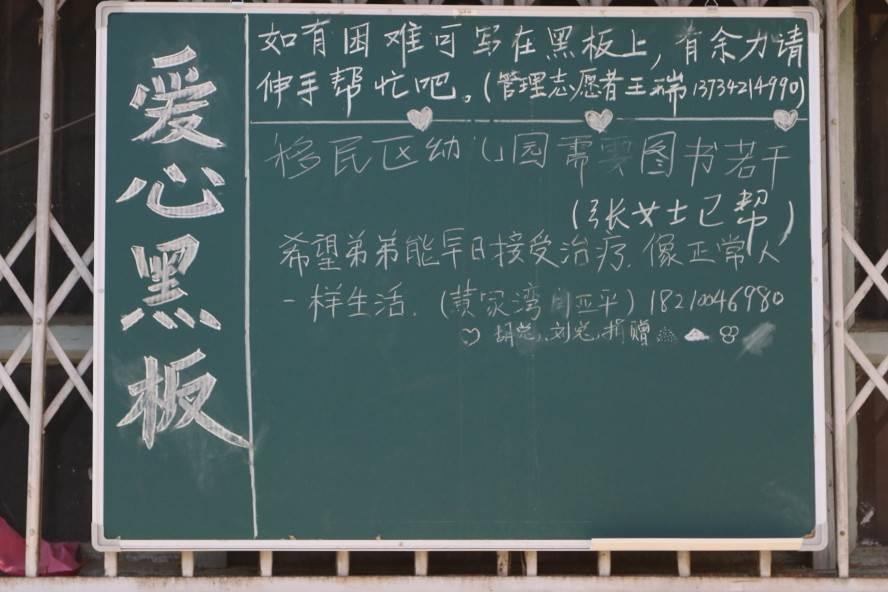 爱心黑板
如有困难可写在黑板上,有余力请
伸手帮忙吧。(管理志愿者王瑞13734214990)
移民区幼儿园需要图书若干
(张女士已帮)
希望弟弟能早日接受治疗.像正常人
一样生活.(黄家湾 亚平)18210046980
胡总.刘总.捐赠